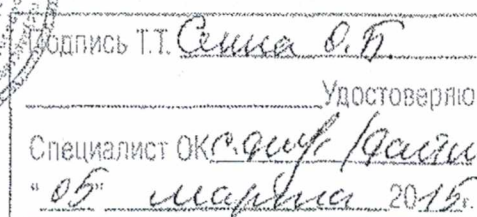 Подпись Т.Т. Сенна О.Б.
Удостоверяю
Специалист ОК
"05" марта 2015г.